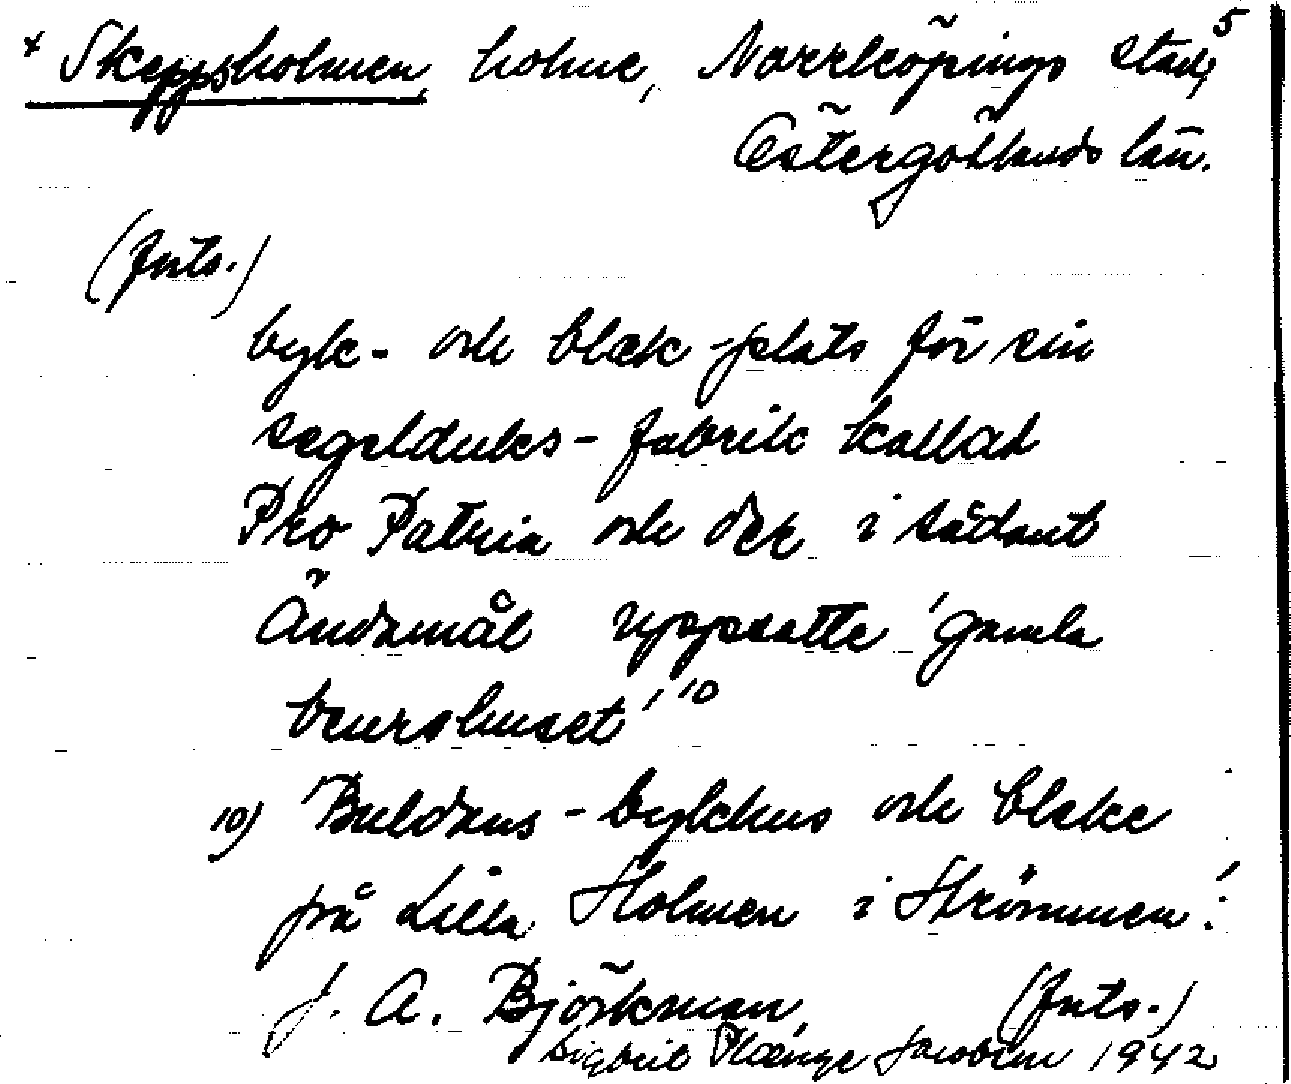 x Skeppsholmen, holme, Norrköpings stad, 5
Östergötlands län.
(forts.)
byk- och blek-plats för sin
segelduks-fabrik kallad
Pro Patria och der i sådant
Ändamål uppsatte 'gamla
beurshuset' 10
10) 'Buldans-bykhus och bleke
på Lilla Holmen i Strömmen'.
J. A. Björkman, (forts.)
Sigbrit Plænge Jacobson 1942